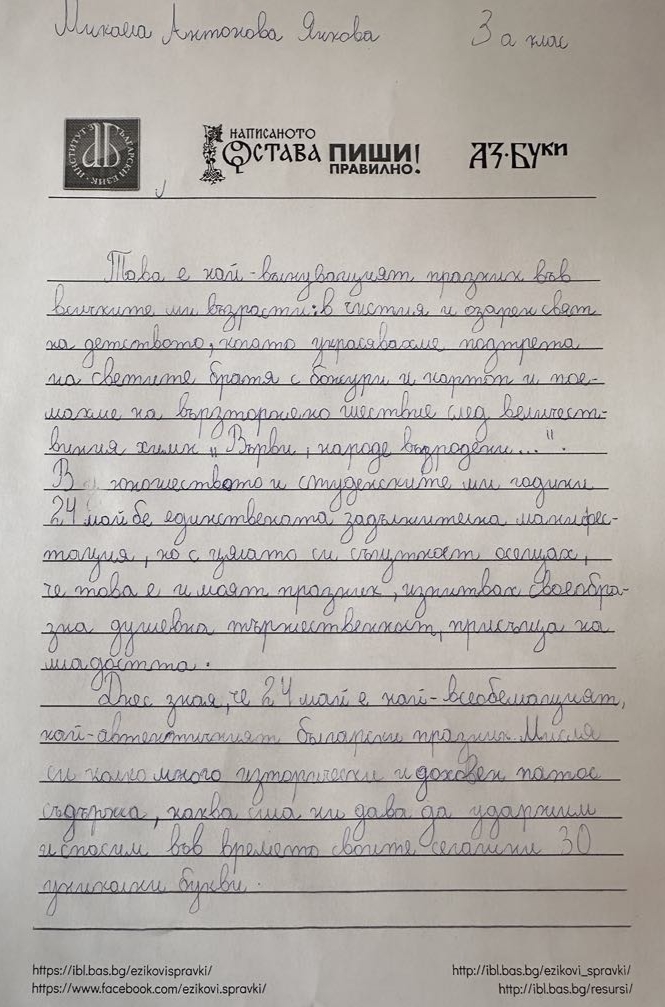 Микаела Антонова Янкова 3 а клас
ИНСТИТУТ ЗА БЪЛГАРСКИ ЕЗИК
НАПИСАНОТО
ОСТАВА ПИШИ
ПРАВИЛНО!
АЗ·БУКИ
Това е най-вълнуващият празник във
всичките ми възрасти: в чистия и озарен свят
на детството, когато украсявахме подтрета
на светите братя с божури и картоп и пое-
махме на вързторжено шествие след величест-
вения химн „Върви, народе възродени...".
В юношеството и студенските ми години
24 май бе единствената задължителна манифес-
тация, но с цялата си същтност осещах,
че това е и моят празник, изпитвах своеобра-
зна душевна тържественност, присъща на
младостта.
Днес зная, че 24 май е най-всеобемащият,
най-автентичният български празник. Мисля
си колко много изторически и духовен патос
съдържа, каква сила ни дава да ударжим
и спасим във времето своите сегашни 30
уникални букви.
https://ibl.bas.bg/ezikovispravki/ http://ibl.bas.bg/ezikovi_spravki/
https://www.facebook.com/ezikovi.spravki/ http://ibl.bas.bg/resursi/